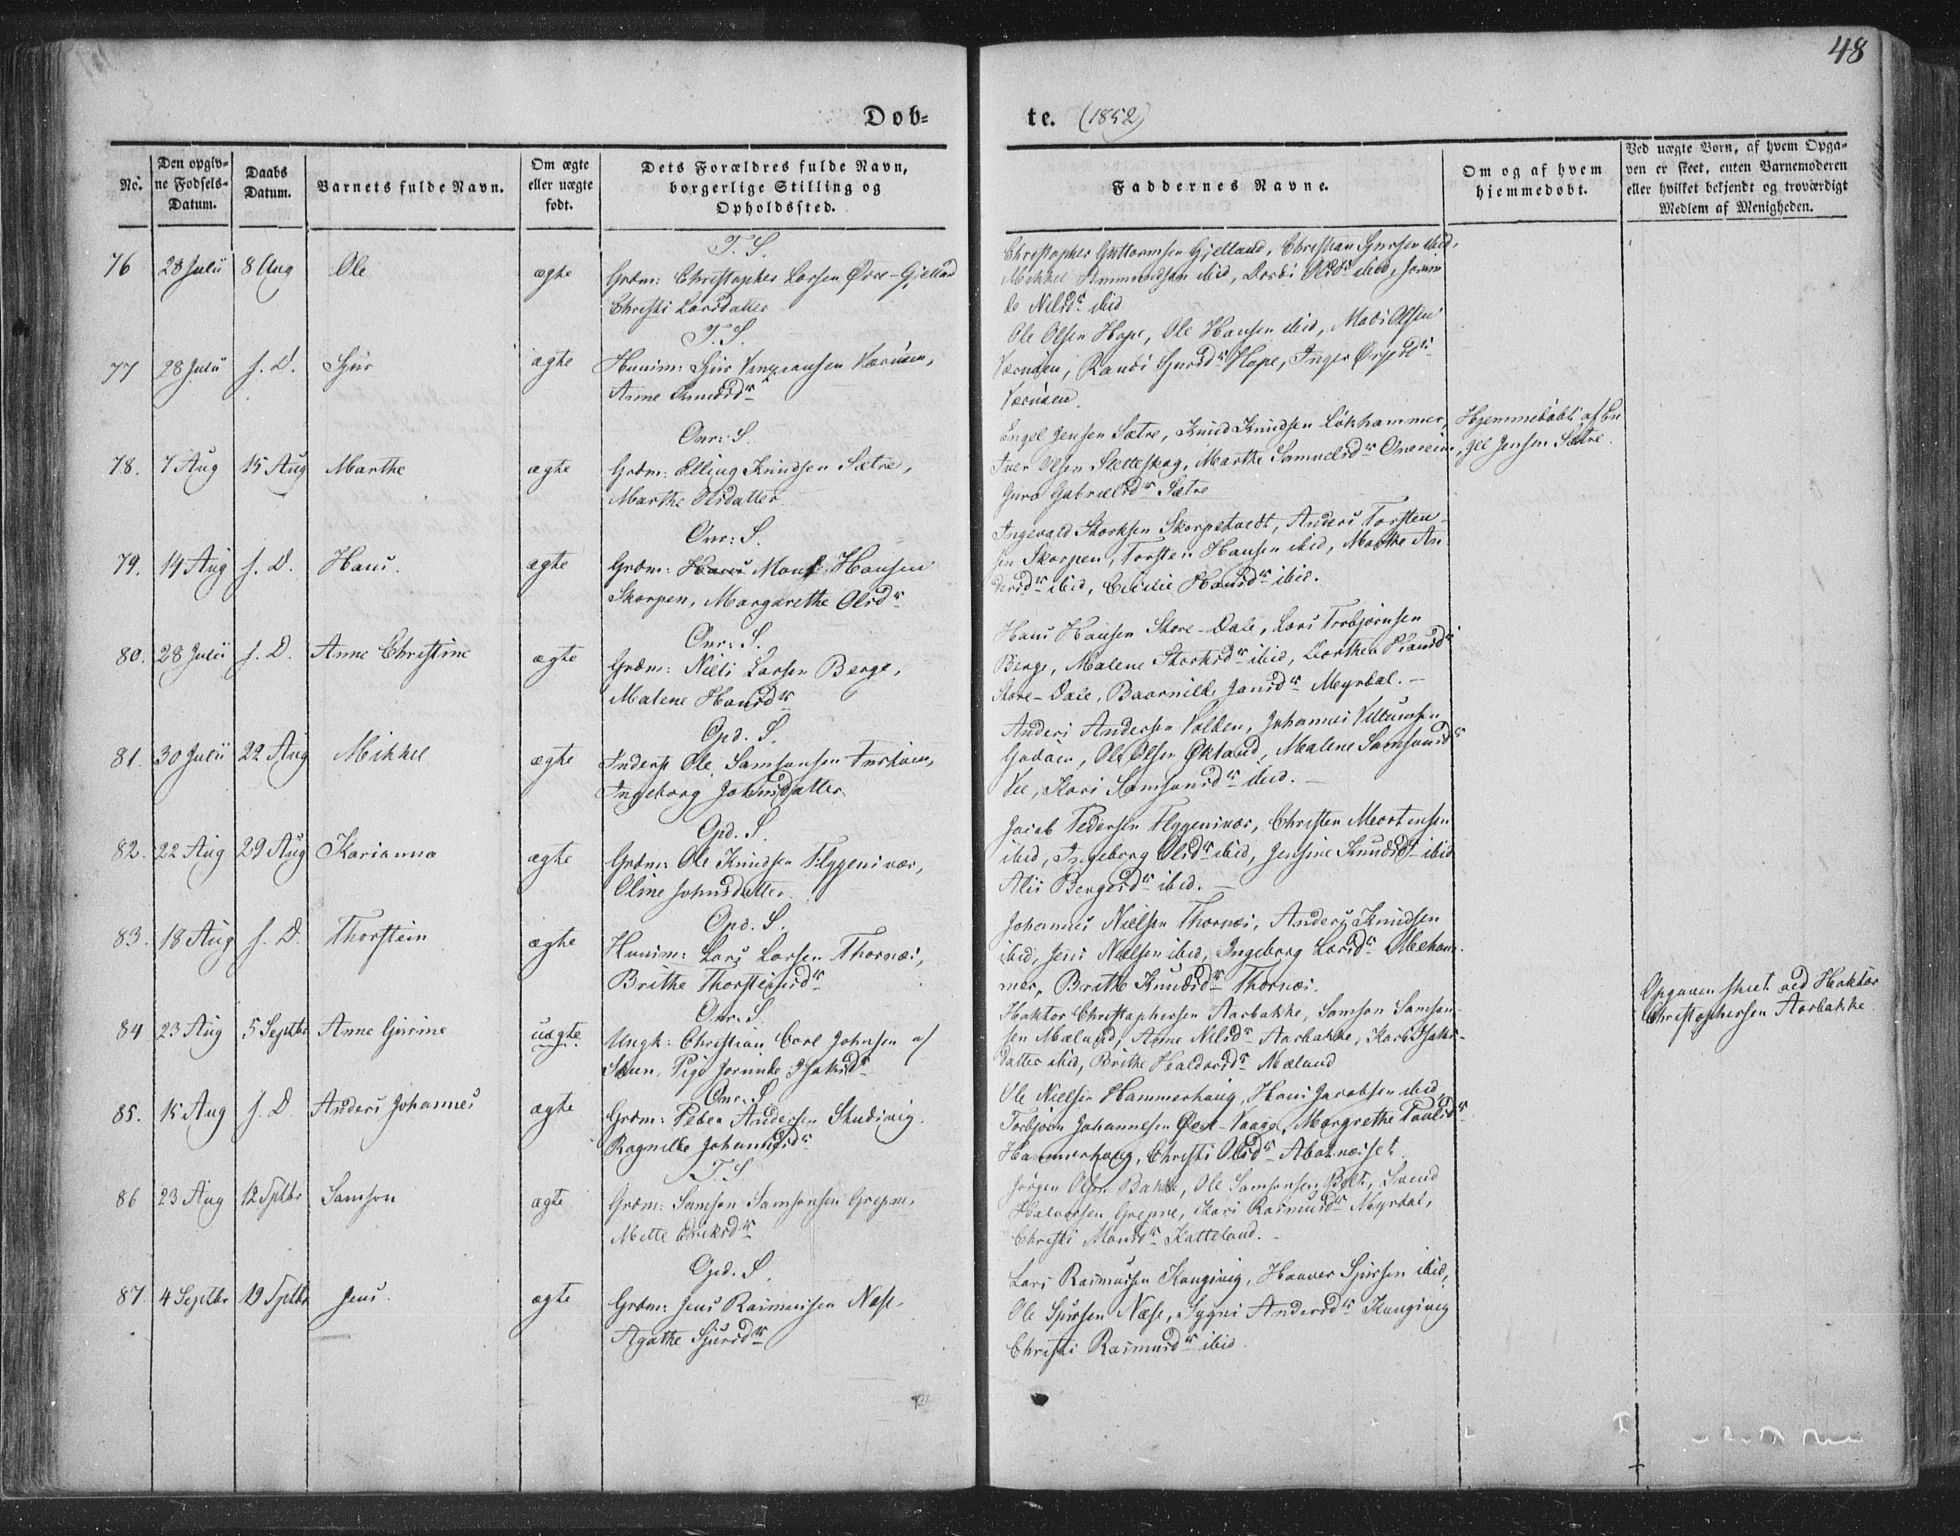 48
Døb-
te. (1852)
No.
Den opgiv-
ne Fødsels-
Datum.
Daabs
Datum.
Barnets fulde Navn.
Om ægte
eller uægte
født.
Dets Forældres fulde Navn,
borgerlige Stilling og
Opholdssted.
Faddernes Navne.
Om og af hvem
hjemmedøbt.
Ved uægte Børn, af hvem Opga-
ven er skeet, enten Barnemoderen
eller hvilket bekjendt og troværdigt
Medlem af Menigheden.
76 28 Julii 8 Aug Ole ægte
T. S.
Grdm: Christopher Larsen Øvre-Gjelland
Christi Larsdatter
Christopher Guttormsen Gjelland, Christian Sjursen ibid,
Mikkel Ammundsen ibid, Dordi Olsdr ibid,
Nilsdr ibid
77 28 Julii s. D. Sjur ægte
T. S.
Huusm: Sjur
Anne Knudsdr
Ole Olsen Hope, Ole Hansen ibid, Mads Olsen
Randi Sjursdr Hope, Inger
78. 7 Aug 15 Aug Marthe ægte
Onr: S.
Grdm: Elling Knudsen Sætre,
Marthe Olsdatter
Engel Jensen Sætre, Knud Knudsen Løkhammer,
Iver Olsen Sletteskog, Marthe Samuelsdr
Guro Gabrielsdr Sætre
Hjemmedøbt af En-
gel Jensen Sætre.
79. 14 Aug s. D. Hans. ægte
Onr: S.
Grdm: Hans Mons Hansen
Skorpen, Margarethe Olsdr
Ingevald Storksen Skorpetvedt, Anders Torsten-
sen Skorpen, Torsten Hansen ibid, Marthe An-
dersdr ibid, Cicilie Hansdr ibid.
80. 28 Julii s. D. Anne Christine ægte
Onr: S.
Grdm: Niels Larsen Berge,
Malene Hansdr
Hans Hansen Store-Dale, Lars Torbjørnsen
Berge, Malene Storksdr ibid, Dorthea Hansdr
Store-Dale, Baarnille Jansdr Myrdal. —
81. 30 Julii 22 Aug Mikkel ægte
Opd. S.
Inderst Ole Samsonsen
Ingeborg Johnsdatter
Anders Andersen Valden, Johannes Villumsen
Ole Olsen Økland, Malene Samsonsdr
Vee, Kari Samsonsdr ibid. —
82. 22 Aug 29 Aug Karianna ægte
Opd. S.
Grdm: Ole Knudsen Flyggensvær,
Oline Johnsdatter
Jacob Pedersen Flyggensvær, Christen Mortensen
ibid, Ingeborg Olsdr ibid, Jensine Knudsdr ibid
Alis Bergesdr ibid. —
83. 18 Aug s. D. Thorstein ægte
Opd. S.
Huusm: Lars Larsen Thornæs,
Brithe Thorsteinsdr
Johannes Nielsen Thornæs, Anders Knudsen
ibid, Jens Nielsen ibid, Ingeborg Larsdr
mer, Brithe Knudsdr Thornæs.
84 23 Aug 5 Septbr Anne Gurine uægte
Onr. S.
Ungk: Christian Carl Johnsen af
Pige Jorunde Isaksdr
Haktor Christophersen Aarbakke, Samson Samson-
sen Mælund, Anne Nilsdr Aarbakke, Kari Isaks-
datter ibid, Brithe Haldorsdr Mælund
Opgaven skeet ved Haktor
Christophersen Aarbakke.
85. 15 Aug s. D. Anders Johannes ægte
Onr. S
Grdm: Peder Andersen Skudsvig.
Ragnille Johannesdr
Ole Nielsen Hammerhaug, Hans Jacobsen ibid,
Torbjørn Johannesen Øvre-Vaage, Margrethe Paulsdr
Hammerhaug, Christi Olsdr
86 23 Aug 12 Sptbr Samson ægte
T. S.
Grdm: Samson Samsonsen Grepne,
Mette Eriksdr
Jørgen Olsen Bakke, Ole Samsonsen Svend
Halvorsen Grepne, Kari Rasmusdr Myrdal,
Christi Monsdr Katteland. —
87. 4 Septbr 19 Sptbr Jens. ægte
Opd. S.
Grdm: Jens Rasmussen Næse.
Agathe Sjursdr
Lars Rasmussen Kongsvig, Haaver Sjursen ibid,
Ole Sjursen Næse, Sygni Andersdr Kongsvig
Christi Rasmusdr ibid.